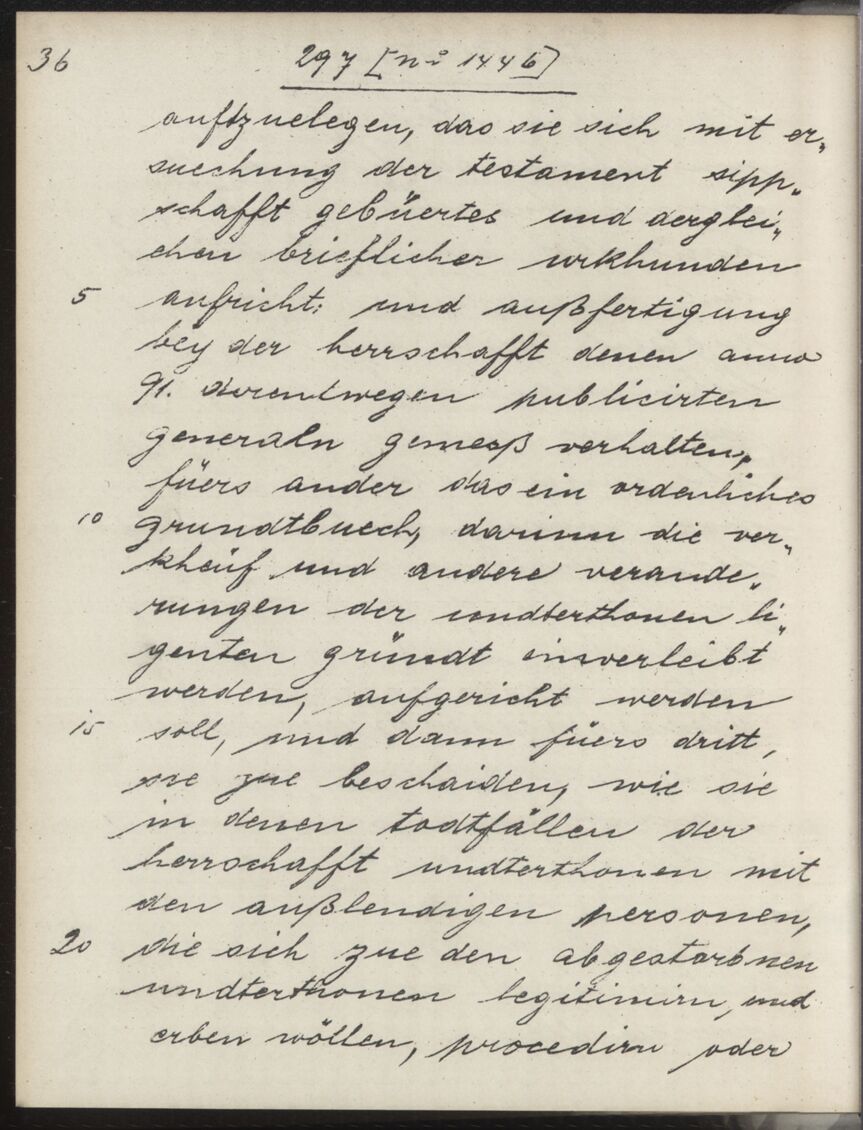 36 297 [nº 1446]
auffzuelegen, das sie sich mit er„
suechung der testament sipp„
schafft gebüertes und derglei„
chen brieflicher urkhunden
5 aufricht: und außfertigung
bey der herrschafft denen anno
91. derentwegen publicirten
generaln gemeß verhalten,
füers ander das ein ordenliches
10 grundtbuech, darinn die ver„
kheüf und andere verande„
rungen der undterthonen li„
genten gründt einverleibt
werden, aufgericht werden
15 soll, und dann füers dritt,
sie zue beschaiden, wie sie
in denen todtfällen der
herrschafft undterthonen mit
den außlendigen personen,
20 die sich zue den abgestorbnen
undterthonen legitimirn, und
erben wöllen, procedirn oder